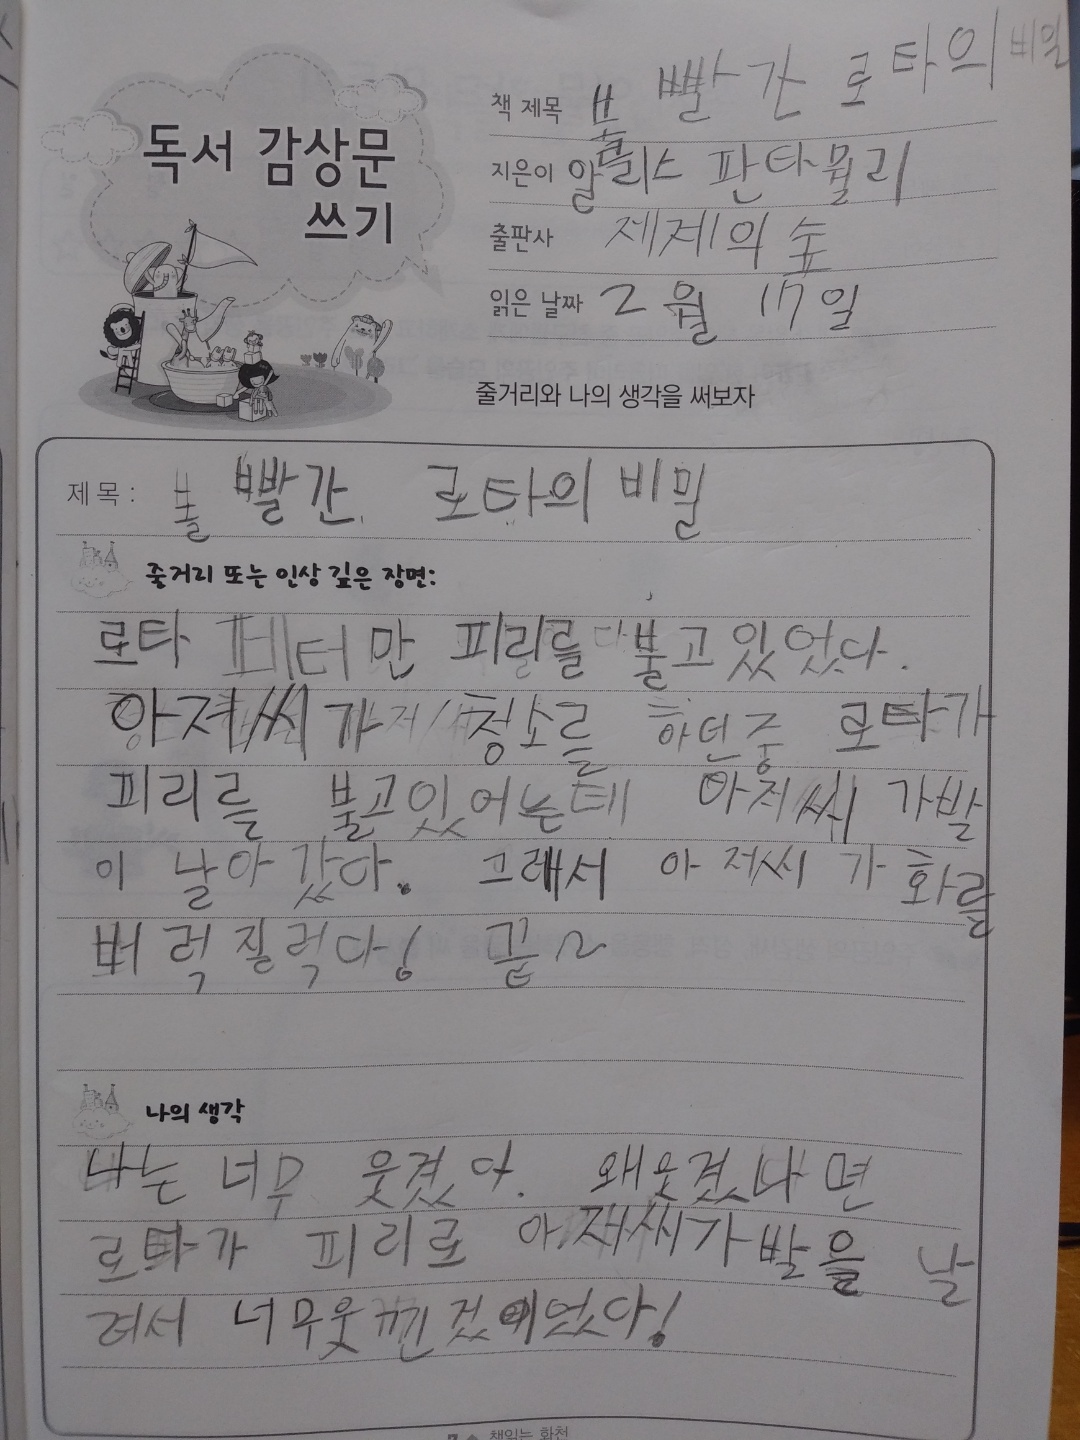 독서 감상문
쓰기
책 제목 빨간 로타의 비밀
지은이 알리스 판타뮐리
출판사 제제의 숲
읽은 날짜 2월 17일
줄거리와 나의 생각을 써보자
제목: 빨간 로타의 비밀
줄거리 또는 인상 깊은 장면:
로타 페터만 피리를 불고있었다.
아저씨가 청소를 하던중 로타가
피리를 불고있어는데 아저씨 가발
이 날아갔다. 그래서 아저씨가 화를
버럭질럭다! 끝~
나의 생각
나는 너무 웃겼어. 왜웃겼냐면
로타가 피리로 아저씨가발을 날
려서 너무웃낀것이었다!
책읽는 화천